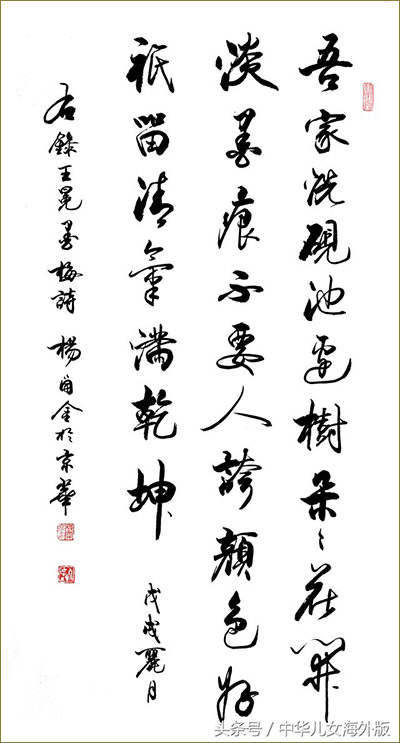 吾家洗硯池邊樹朵々花開
淡墨痕不要人誇顏色好
祇留清氣滿乾坤
戊戌麗月
右錄王冕墨梅詩 楊金於京華
头条号 / 中华儿女海外版